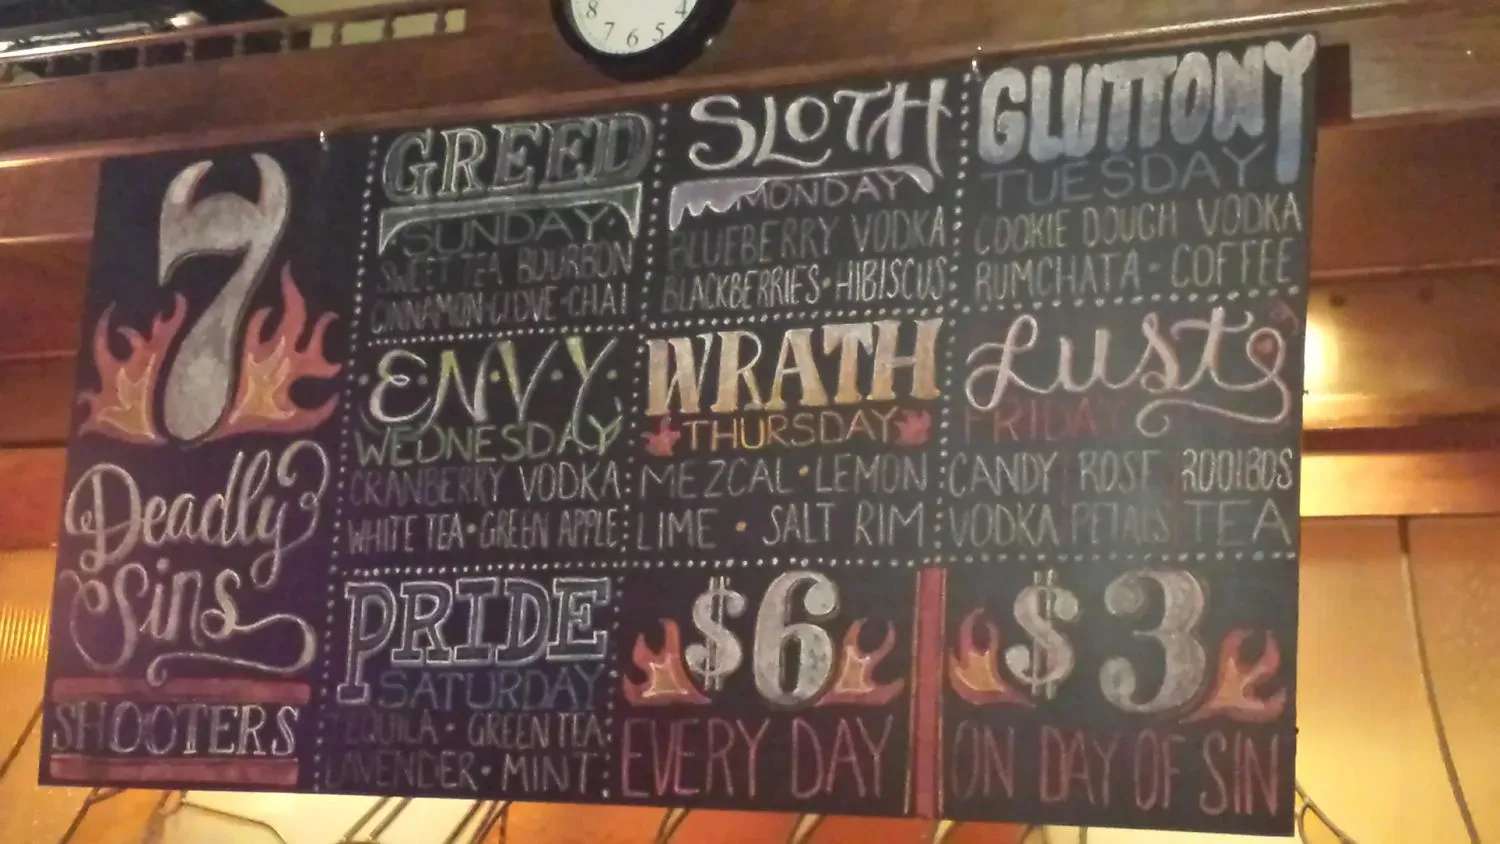 8 4
7 6 5
7
Deadly
Sins
SHOOTERS
GREED
SUNDAY
SWEET TEA BOURBON
CINNAMON·CLOVE·CHAI
SLOTH
MONDAY
BLUEBERRY VODKA
BLACKBERRIES·HIBISCUS
GLUTTONY
TUESDAY
COOKIE DOUGH VODKA
RUMCHATA·COFFEE
ENVY
WEDNESDAY
CRANBERRY VODKA
WHITE TEA·GREEN APPLE
WRATH
THURSDAY
MEZCAL·LEMON
LIME·SALT RIM
Lust
FRIDAY
CANDY ROSE ROOIBOS
VODKA PETALS TEA
PRIDE
SATURDAY
TEQUILA·GREEN TEA
LAVENDER·MINT
$6
EVERY DAY
$3
ON DAY OF SIN